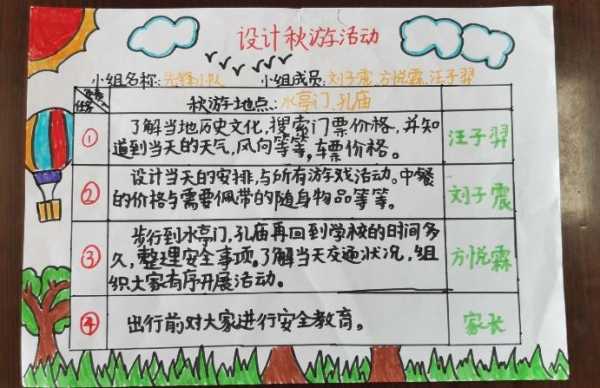 设计秋游活动
小组名称:先锋小队 小组成员:刘子震、方悦霖、汪子羿
任务
秋游地点:水亭门、孔庙
① 了解当地历史文化,搜索门票价格,并知
道到当天的天气,风向等等,车票价格。
汪子羿
② 设计当天的安排,与所有游戏活动。中餐
的价格与需要佩带的随身物品等等。
刘子震
③ 步行到水亭门,孔庙再回到学校的时间多
久,整理安全事项。了解当天交通状况,组
织大家有序开展活动。
方悦霖
④ 出行前对大家进行安全教育。
家长